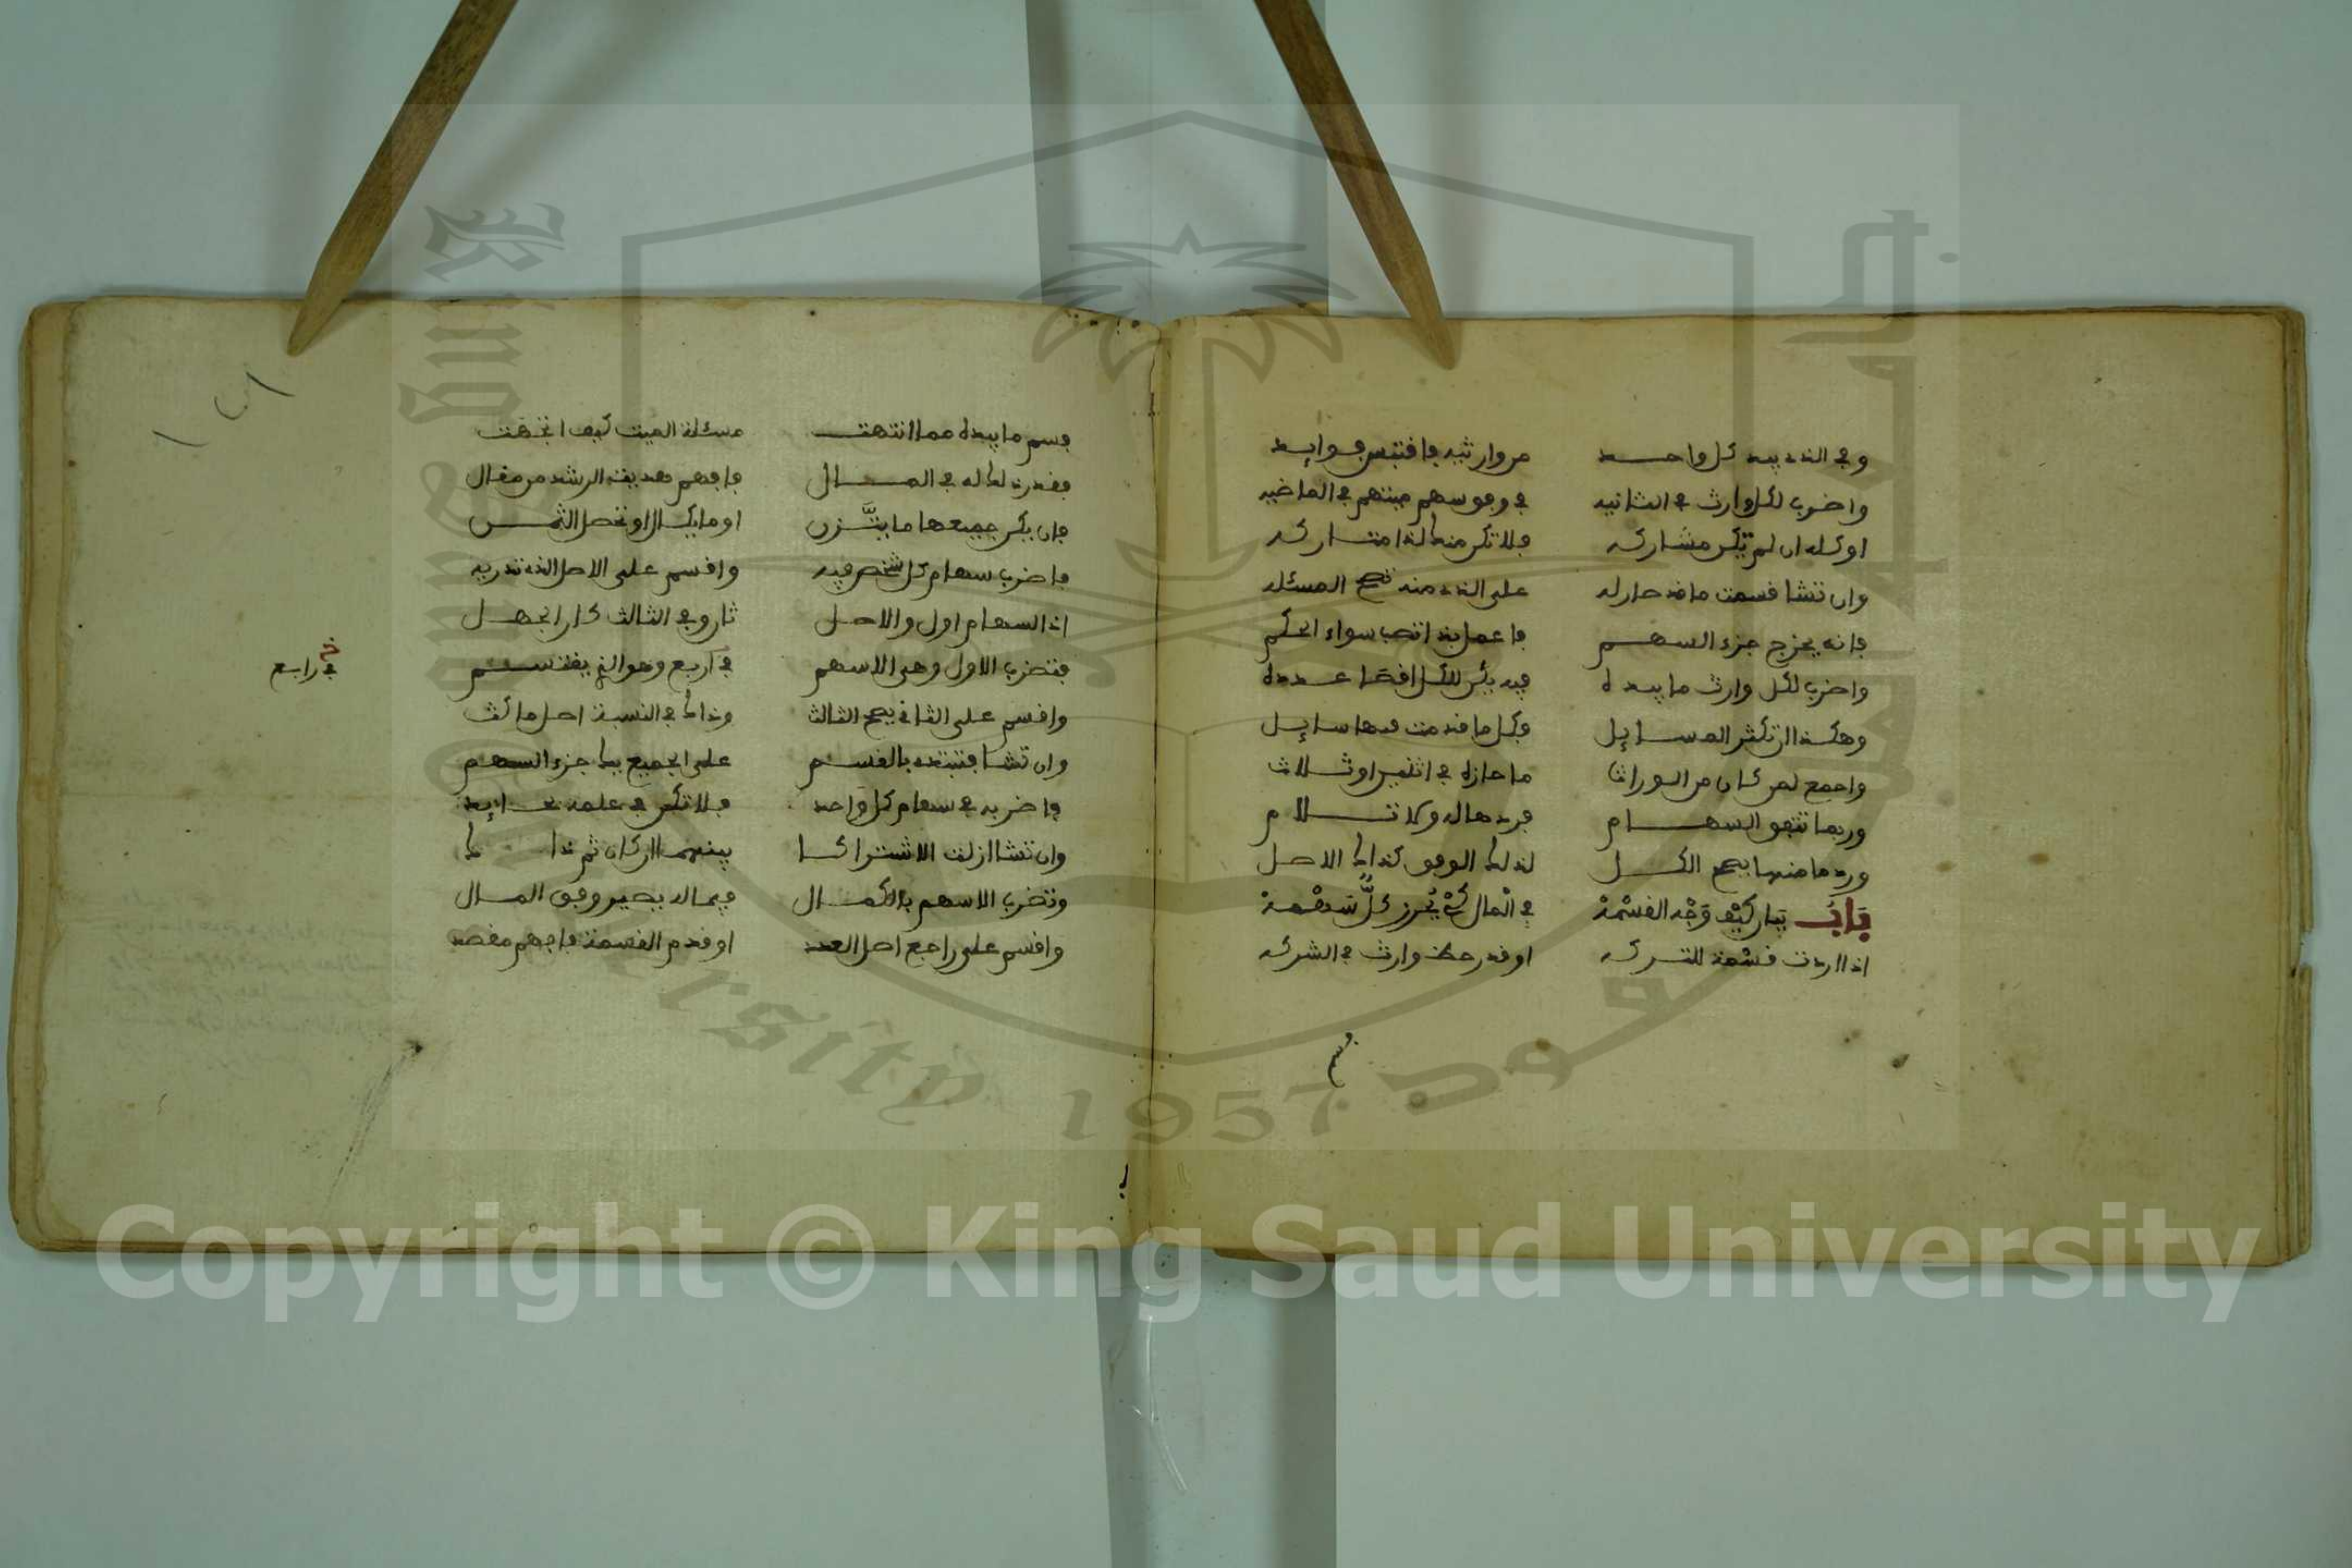 وفي الذي بيد كل واحد من وارثيه فاقتبس فوايد
واضرب لكل وارث في الثانيه في وفق سهم ميتهم في الماضيه
او كله ان لم تكن مشاركه فلا تكن منك لذا متاركه
وان تشا قسمت ما قد حاز له على الذي منه تصح المسئله
فانه يخرج جزء السهم فاعمل به انت سواء الحكم
واضرب لكل وارث ما بيده فيه يكن للكل اقصا عدده
وهكذا ان تكثر المسايل وكل ما قدمت فيها سايل
واجمع لمن كان من الوراث ما حازه في اثنين او ثلاث
وربما تتفق السهام فردها له ولا تلام
ورد ما منها يصح الكل لذلك الوفق كذاك الاصل
بَابُ بيان كيف وَجْه القسْمة في المال كي يُحرز كلٌّ سهمه
اذا اردت قسمة للتركه او قدر حظ وارث في الشركه
قسم
قسم ما بيده مما انتهت مسئلة الميت كيف اتجهت
فقدر ذلك له في المال فافهم هديت الرشد من مقال
فان يكن جميعها ما يتّزن او ما يكال او تحصل الثمن
فاضرب سهام كل شخص فيه واقسم على الاصل الذي تدريه
اذ السهام اول والاصل ثان وفي الثالث كان الجهل
فتضرب الاول وهي الاسهم في اربع وهو الذي يقتسم
في رابع
خ
واقسم على الثاني يصح الثالث وذاك في النسبة اصل ماكث
وان تشا فتبتدي بالقسم على الجميع بيك جزء السهم
فاضربه في سهام كل واحد فلا تكن في علمه بحايد
وان تشا ازلت الاشتراكا بينهما ان كان ثم ذاك
وتضرب الاسهم بالكمال فيما له يصير وفق المال
واقسم على راجع اصل العدد او قدم القسمة فافهم مقصد
Copyright © King Saud University
1957